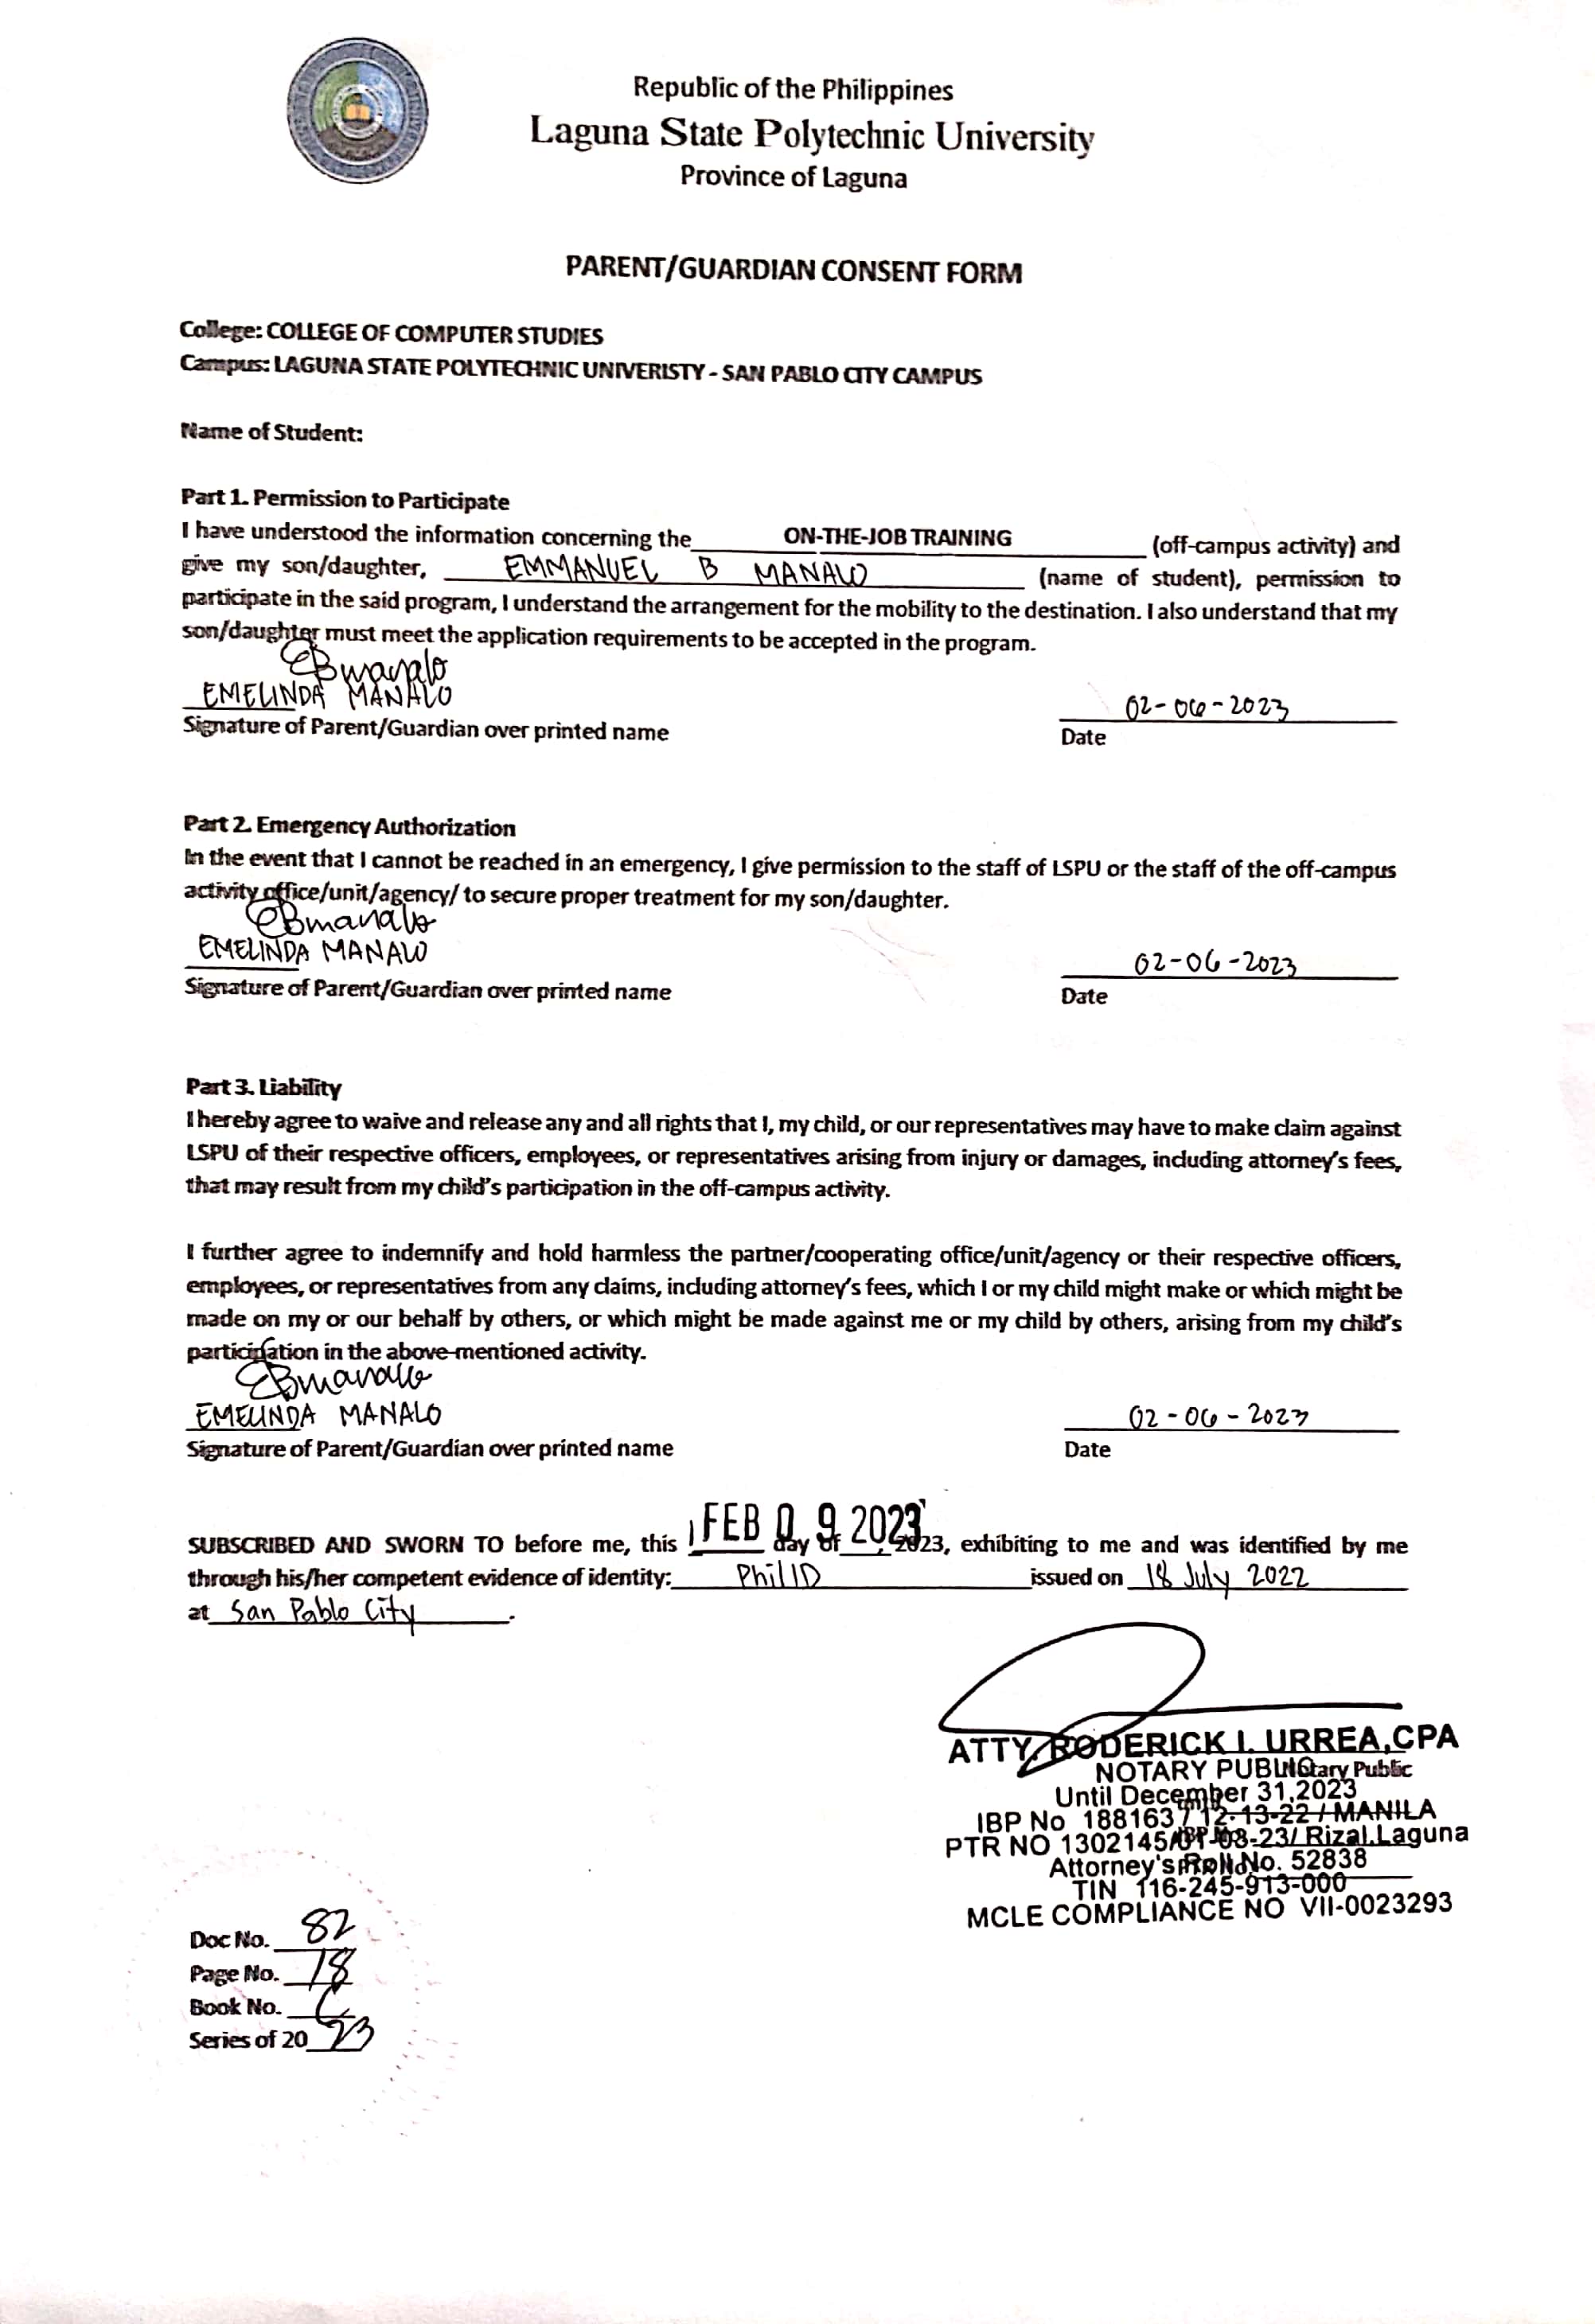 Republic of the Philippines
Laguna State Polytechnic University
Province of Laguna
PARENT/GUARDIAN CONSENT FORM
College: COLLEGE OF COMPUTER STUDIES
Campus: LAGUNA STATE POLYTECHNIC UNIVERISTY - SAN PABLO CITY CAMPUS
Name of Student:
Part 1. Permission to Participate
I have understood the information concerning the ON-THE-JOB TRAINING (off-campus activity) and
give my son/daughter, EMMANUEL B MANALO (name of student), permission to
participate in the said program, I understand the arrangement for the mobility to the destination. I also understand that my
son/daughter must meet the application requirements to be accepted in the program.
EBmanalo
EMELINDA MANALO 02-06-2023
Signature of Parent/Guardian over printed name Date
Part 2. Emergency Authorization
In the event that I cannot be reached in an emergency, I give permission to the staff of LSPU or the staff of the off-campus
activity office/unit/agency/ to secure proper treatment for my son/daughter.
EBmanalo
EMELINDA MANALO 02-06-2023
Signature of Parent/Guardian over printed name Date
Part 3. Liability
I hereby agree to waive and release any and all rights that I, my child, or our representatives may have to make claim against
LSPU of their respective officers, employees, or representatives arising from injury or damages, including attorney's fees,
that may result from my child's participation in the off-campus activity.
I further agree to indemnify and hold harmless the partner/cooperating office/unit/agency or their respective officers,
employees, or representatives from any claims, including attorney's fees, which I or my child might make or which might be
made on my or our behalf by others, or which might be made against me or my child by others, arising from my child's
participation in the above-mentioned activity.
EBmanalo
EMELINDA MANALO 02-06-2023
Signature of Parent/Guardian over printed name Date
SUBSCRIBED AND SWORN TO before me, this FEB 09 2023 day of , 2023, exhibiting to me and was identified by me
through his/her competent evidence of identity: PhilID issued on 18 July 2022
at San Pablo City.
ATTY. RODERICK I. URREA,CPA
NOTARY PUBLIC Notary Public
Until December 31,2023
IBP No 188163 / 12-13-22 / MANILA
PTR NO 1302145/01-03-23/ Rizal,Laguna
Attorney's Roll No. 52838
TIN 116-245-913-000
MCLE COMPLIANCE NO VII-0023293
Doc No. 82
Page No. 18
Book No.
Series of 2023